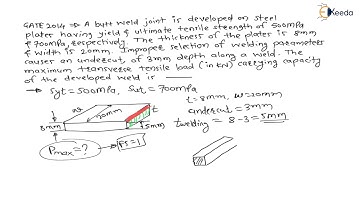 Ekeeda
GATE 2014 → A butt weld joint is developed on steel
plates having yield & ultimate tensile strength of 500MPa
& 700MPa, respectively. The thickness of the plates is 8mm
& width is 20mm. Improper selection of welding parameters
causes an undercut of 3mm depth along a weld. The
maximum transverse tensile load (in kN) carrying capacity
of the developed weld is
→ Syt = 500MPa, Sut = 700MPa
t = 8mm, w = 20mm
undercut = 3mm
twelding = 8-3 = 5mm
w
20mm
t
8mm
5mm
Pmax = ?
FS = 1